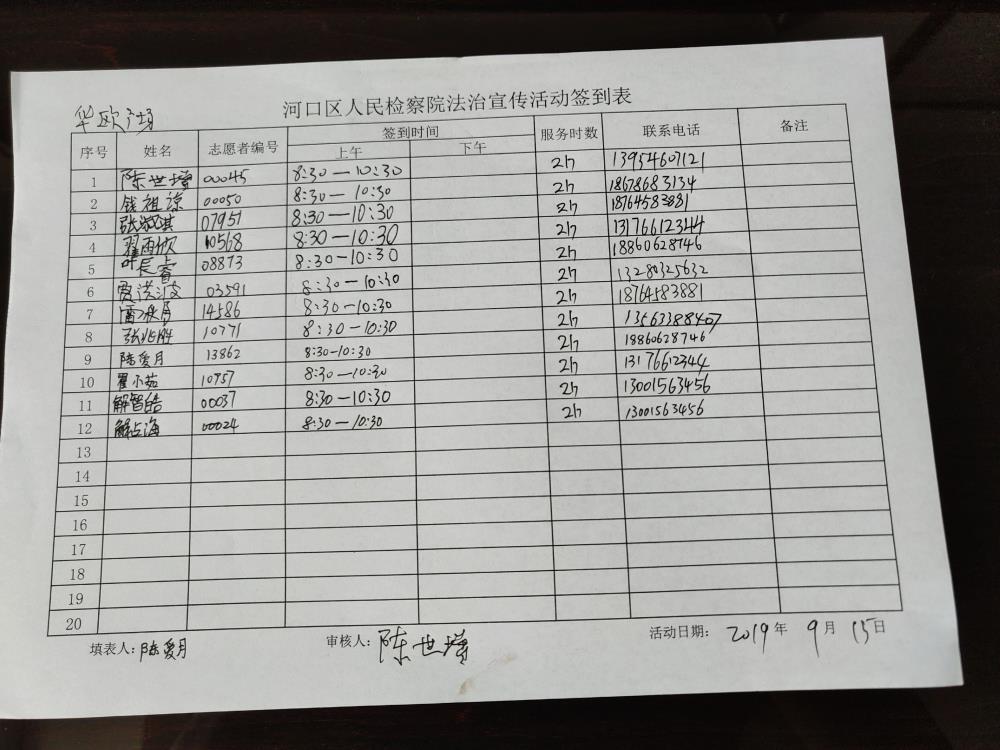 华欧广场
河口区人民检察院法治宣传活动签到表
序号 姓名 志愿者编号 签到时间 服务时数 联系电话 备注
上午 下午
1 陈世增 00045 8:30—10:30 2h 13954607121
2 钱祖谅 00050 8:30—10:30 2h 18678683134
3 张淑琪 07951 8:30—10:30 2h 18764583881
4 翟雨欣 10568 8:30—10:30 2h 13176612344
5 08873 8:30-10:30 2h 18860628746
6 贾洪波 03591 8:30—10:30 2h 13280325632
7 14586 8:30—10:30 2h 18764583881
8 张兆胜 10771 8:30—10:30 2h 13563388407
9 陈爱月 13862 8:30-10:30 2h 18860628746
10 翟小茹 10757 8:30—10:30 2h 13176612344
11 解智皓 00037 8:30—10:30 2h 13001563456
12 解占海 00024 8:30—10:30 2h 13001563456
13
14
15
16
17
18
19
20
填表人:陈爱月 审核人:陈世增 活动日期: 2019年 9月 15日